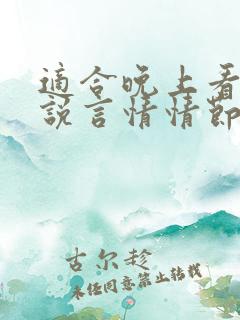 適合晚上看
說言情情節
古尔趁
未经同意禁止转载